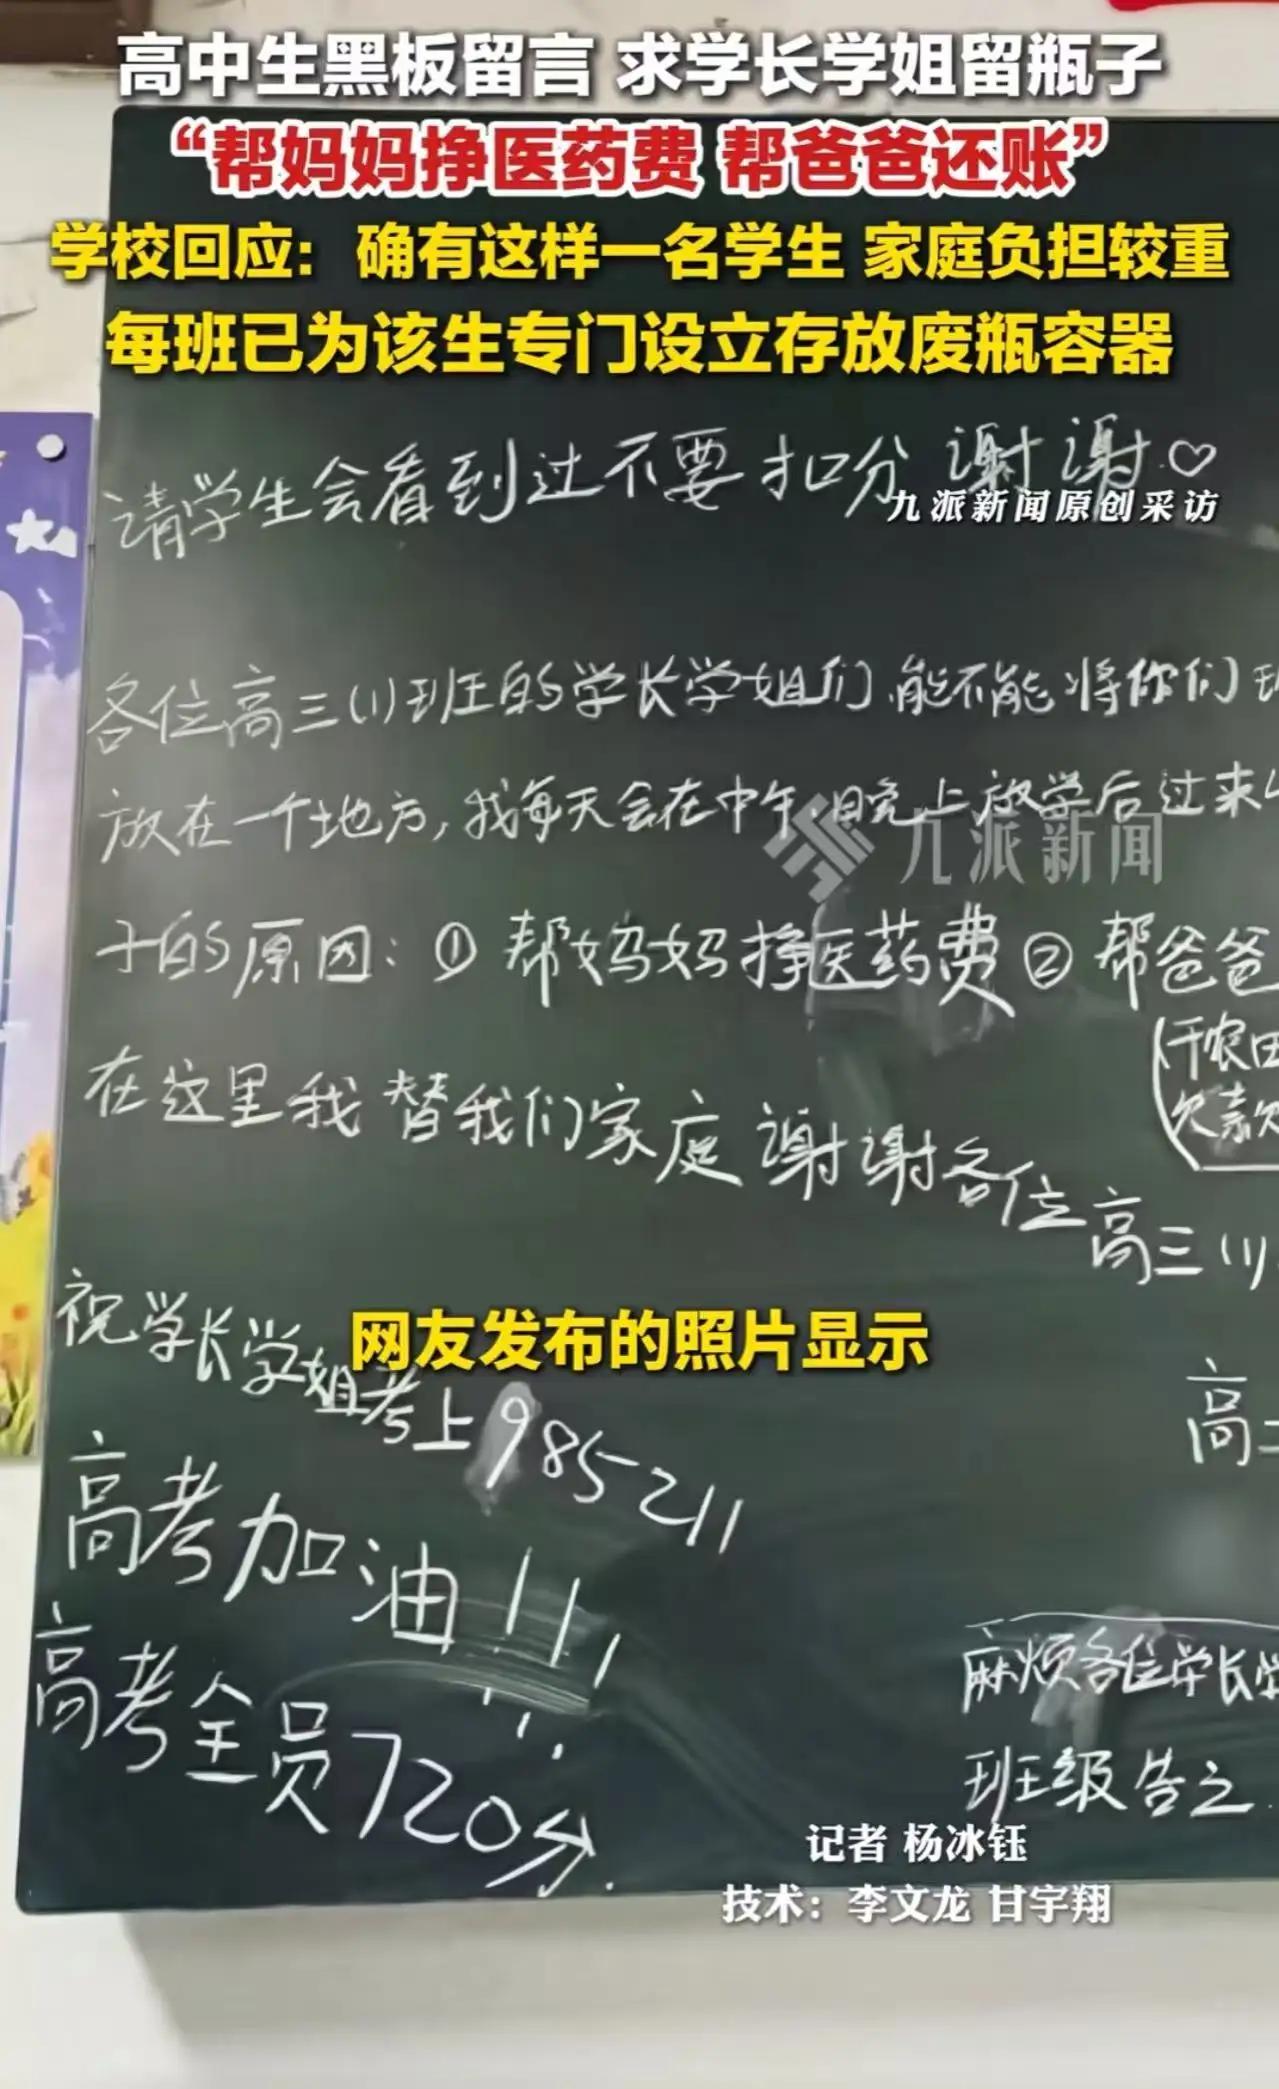 高中生黑板留言 求学长学姐留瓶子
“帮妈妈挣医药费 帮爸爸还账”
学校回应：确有这样一名学生 家庭负担较重
每班已为该生专门设立存放废瓶容器
请学生会看到过不要扣分 谢谢♡
九派新闻原创采访
各位高三(1)班的学长学姐们,能不能将你们
放在一个地方,我每天会在中午,晚上放学后过来
九派新闻
子的原因：① 帮妈妈挣医药费 ② 帮爸爸
(干农田
欠款
在这里我替我们家庭谢谢各位高三(1)
祝学长学姐考上985 211
网友发布的照片显示
高
高考加油!!!
高考全员720分.
麻烦各位学长
班级告之.
记者 杨冰钰
技术：李文龙 甘宇翔